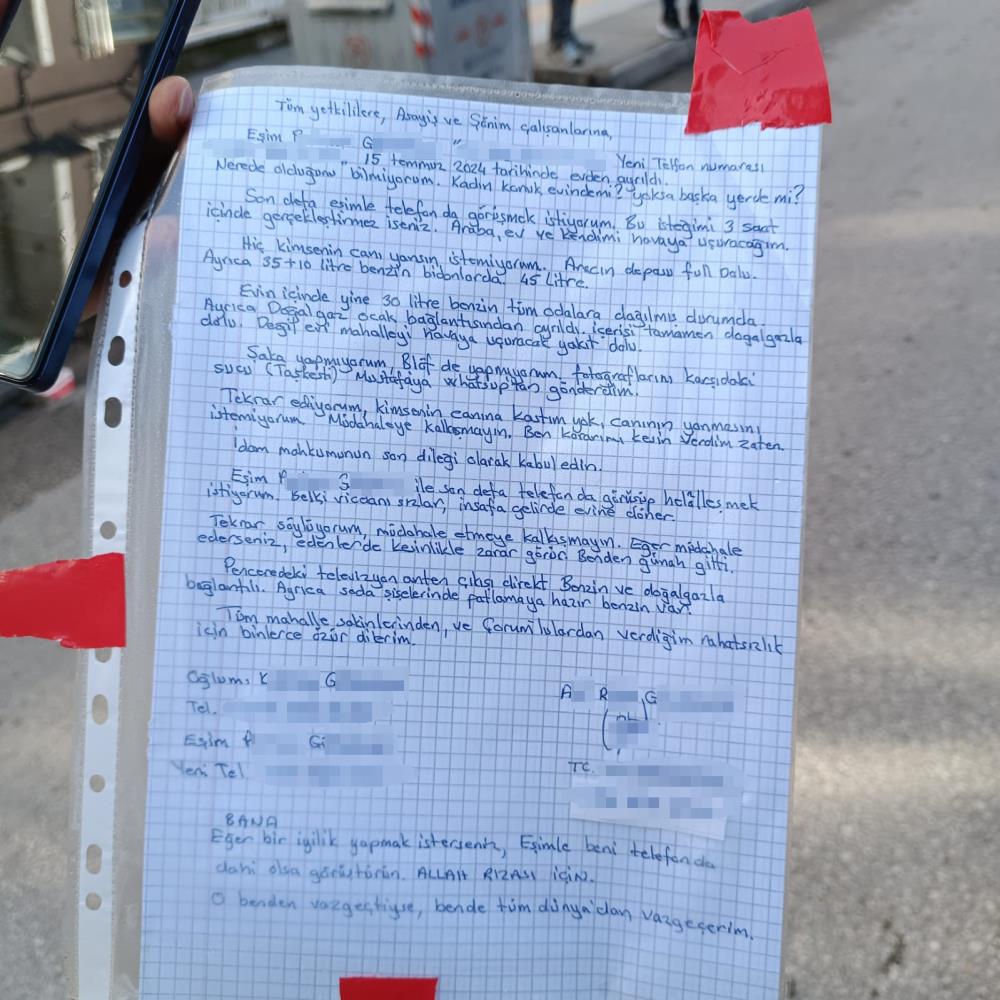 Tüm yetkililere, Asayiş ve Şönim çalışanlarına,
Eşim P G " Yeni Telfon numarası
15 temmuz 2024 tarihinde evden ayrıldı.
Nerede olduğunu bilmiyorum. Kadın konuk evindemi? yoksa başka yerde mi?
Son defa eşimle telefonda görüşmek istiyorum. Bu isteğimi 3 saat
içinde gerçekleştirmez iseniz. Araba, ev ve kendimi havaya uçuracağım.
Hiç kimsenin canı yansın istemiyorum. Aracın deposu full Dolu.
Ayrıca 35+10 litre benzin bidonlarda. 45 Litre.
Evin içinde yine 30 litre benzin tüm odalara dağılmış durumda.
Ayrıca Doğal gaz ocak bağlantısından ayrıldı. içerisi tamamen doğalgazla
dolu. Değil evi mahalleyi havaya uçuracak yakıt dolu.
Şaka yapmıyorum, Blöf de yapmıyorum, fotoğraflarını karşıdaki
sucu (Taşkesti) Mustafaya whatsup'tan gönderdim.
Tekrar ediyorum, kimsenin canına kastım yok, canının yanmasını
istemiyorum Müdahaleye kalkışmayın. Ben kararımı kesin verdim zaten.
İdam mahkumunun son dileği olarak kabul edin.
Eşim P G ile son defa telefonda görüşüp helâlleşmek
istiyorum. Belki vicdanı sızlar, insafa gelirde evine döner.
Tekrar söylüyorum, müdahale etmeye kalkışmayın. Eğer müdahale
ederseniz, edenlerde kesinlikle zarar görür. Benden günah gitti.
Penceredeki televizyon anten çıkışı direkt Benzin ve doğalgazla
bağlantılı. Ayrıca soda şişelerinde patlamaya hazır benzin var.
Tüm mahalle sakinlerinden, ve Çorumlulardan verdiğim rahatsızlık
için binlerce özür dilerim.
Oğlum: K G
A R G
Tel.
Eşim P Gi
Yeni Tel
TC.
BANA
Eğer bir iyilik yapmak isterseniz, Eşimle beni telefonda
dahi olsa görüştürün. ALLAH RIZASI İÇİN.
O benden vazgeçtiyse, bende tüm dünya'dan vazgeçerim.